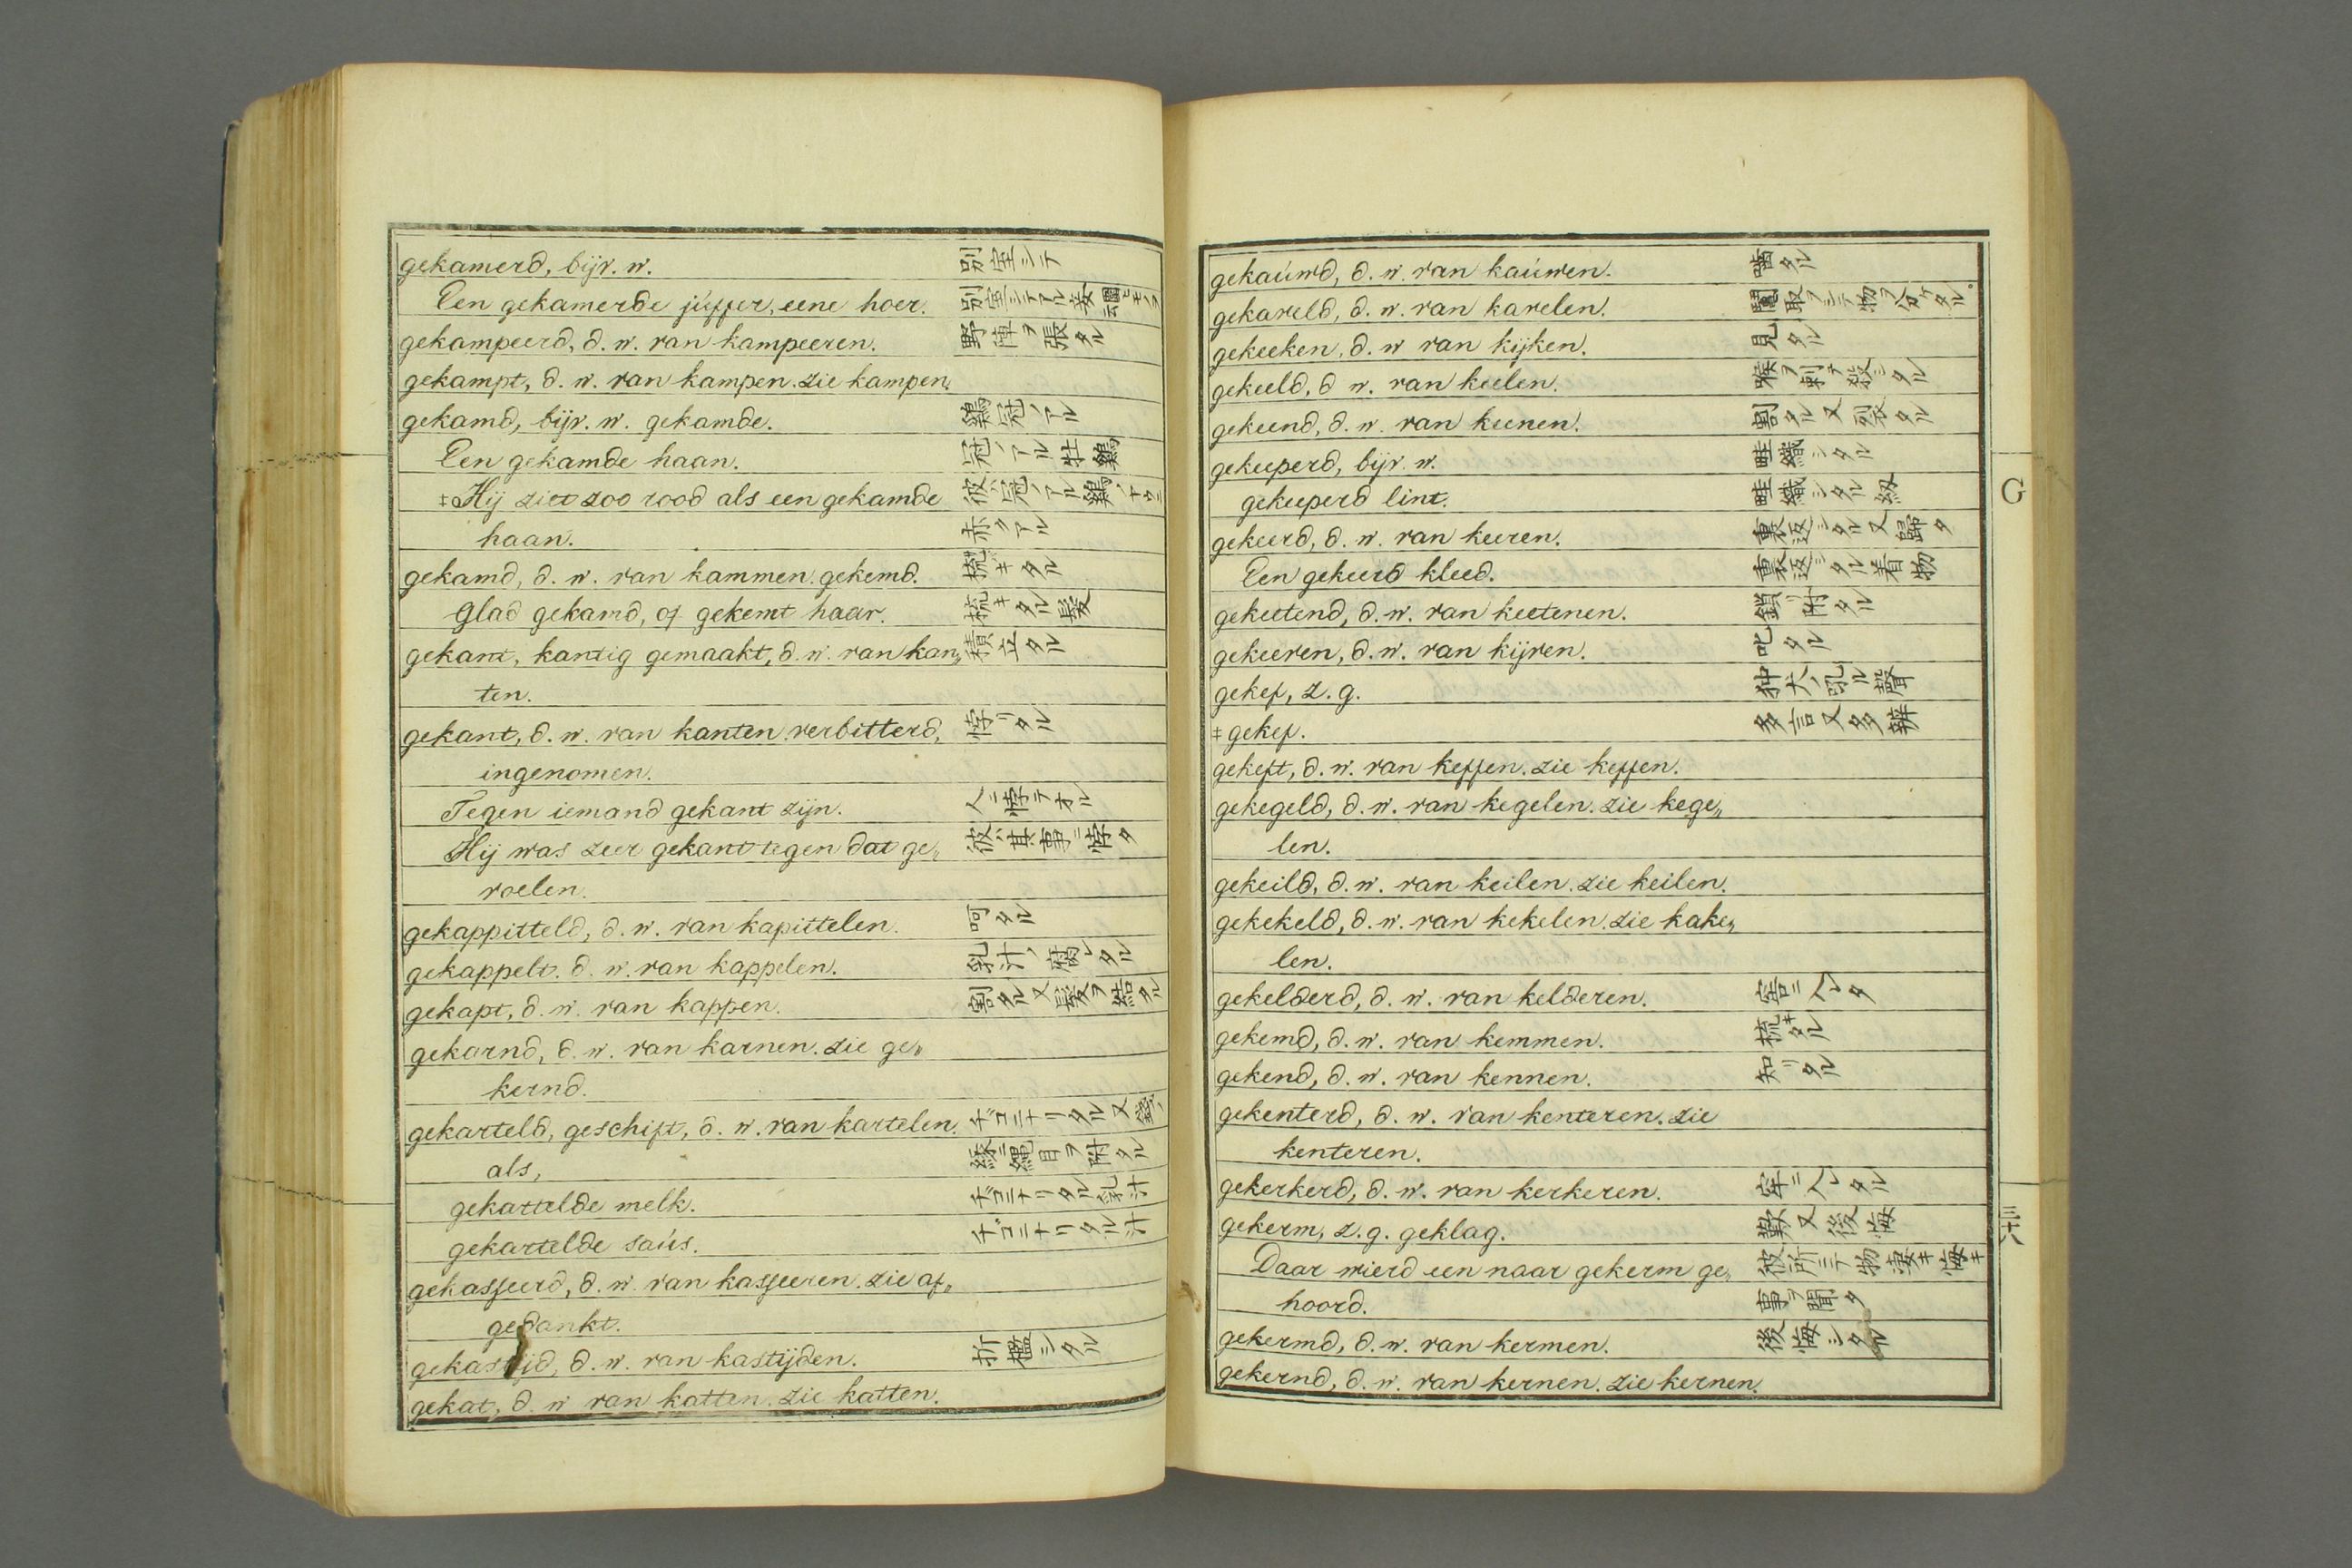 gekamerd, bijv. w. 別室シテ
Een gekamerde júffer, eene hoer. 別室シテアル妾
gekampeerd, d. w. van kampeeren. 野陣ヲ張タル
gekampt, d. w. van kampen. zie kampen.
gekamd, bijv. w. gekamde. 鶏冠ノアル
Een gekamde haan. 冠ノアル牡鶏
‡Hij ziet zoo rood als een gekamde 彼ハ冠ノアル鶏
haan. 赤クアル
gekamd, d. w. van kammen. gekemd. 梳キタル
Glad gekamd, of gekemt haar. 梳キタル髪
gekant, kantig gemaakt, d. w. van kan„ 積立タル
ten.
gekant, d. w. van kanten. verbitterd, 悖リタル
ingenomen.
Tegen iemand gekant zijn. 人ニ悖テオル
Hij was zeer gekant tegen dat ge„ 彼ハ其事ニ悖タ
voelen.
gekappitteld, d. w. van kapittelen. 呵タル
gekappelt. d. w. van kappelen. 乳汁ノ腐レタル
gekapt, d. w. van kappen. 割タル又髪ヲ結タル
gekarnd, d. w. van karnen. zie ge„
kernd.
gekarteld, geschift, d. w. van kartelen. チゴニナリタル又
als, 縁ニ縄目ヲ附タル
gekartelde melk. チゴニナリタル乳汁
gekartelde saús. チゴニナリタル汁
gekasseerd, d. w. van kasseeren. zie af„
gedankt.
gekastijd, d. w. van kastijden. 折檻シタル
gekat, d. w van katten. zie katten.
gekaúwd, d. w. van kaúwen. 嚙タル
gekaveld, d. w. van kavelen. 鬮取ヲシテ物ヲ分ケタル
gekeeken, d. w van kijken. 見タル
gekeeld, d w. van keelen. 喉ヲ刺テ殺シタル
gekeend, d. w. van keenen. 割タル又裂タル
gekeeperd, bijv. w. 畦織シタル
gekeeperd lint. 畦織シタル
gekeerd, d. w. van keeren. 裏返シタル又歸タ
Een gekeerd kleed. 裏返シタル着物
gekeetend, d. w. van keetenen. 鎖附タル
gekeeven, d. w. van kijven. 叱タル
gekef, z. g. 狆犬ノ吼ル聲
‡gekef. 多言又多辨
gekeft, d. w. van keffen. zie keffen.
gekegeld, d. w. van kegelen. zie kege„
len.
gekeild, d. w. van keilen. zie keilen.
gekekeld, d. w. van kekelen. zie kake„
len.
gekelderd, d. w. van kelderen. 窖ニ入レタ
gekemd, d. w. van kemmen. 梳キタル
gekend, d. w. van kennen. 知リタル
gekenterd, d. w. van kenteren. zie
kenteren.
gekerkerd, d. w. van kerkeren. 牢ニ入レタル
gekerm, z. g. geklag. 歎又後悔
Daar wierd een naar gekerm ge„ 彼所ニテ物凄キ悔キ
hoord. 事ヲ聞タ
gekermd, d. w. van kermen. 後悔シタル
gekernd, d. w. van kernen. zie kernen.
G